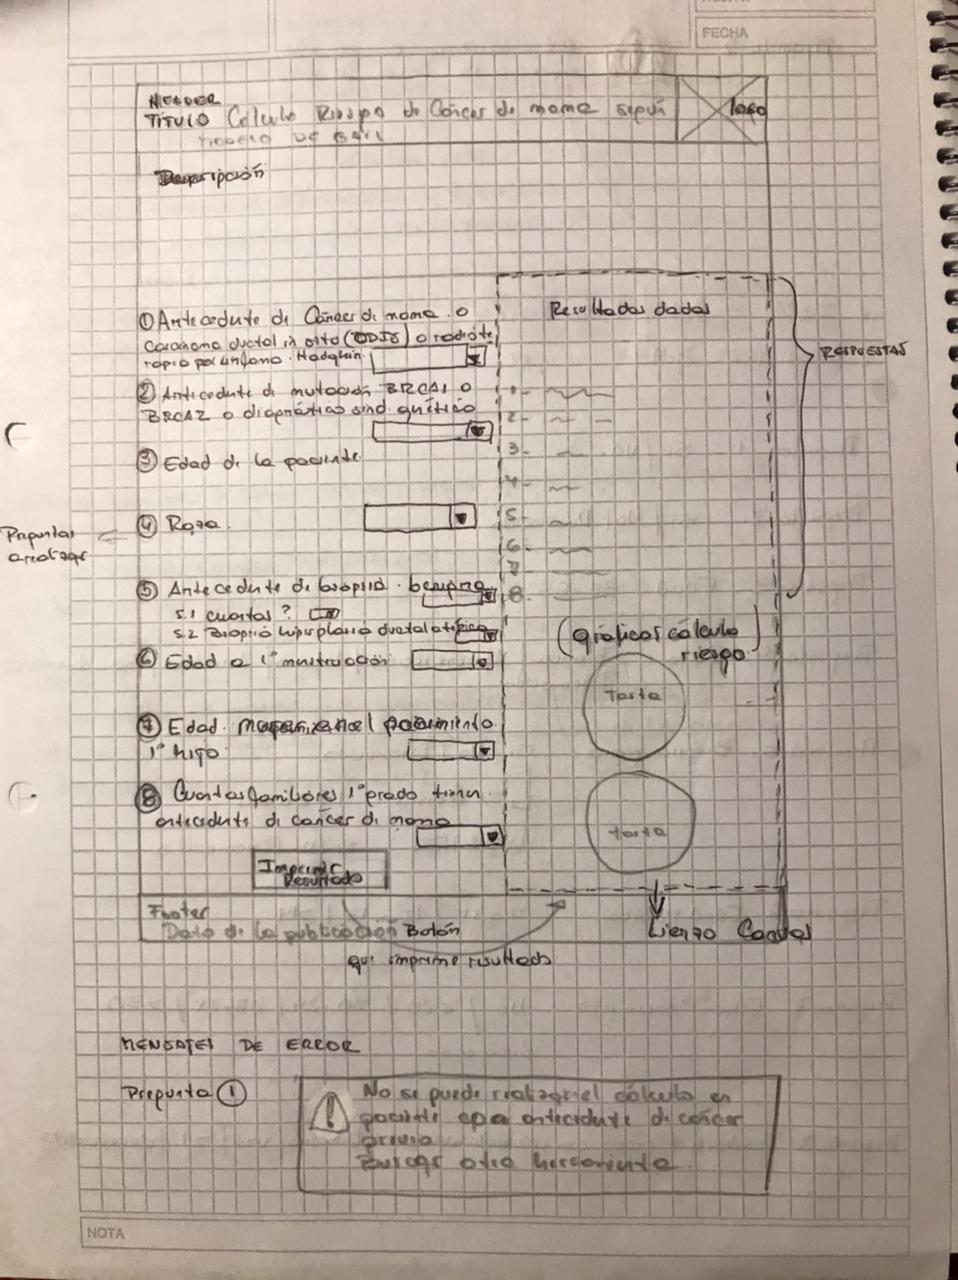 FECHA
HEADER
TÍTULO Calculo Riesgo de Cáncer de mama según
modelo DE GAIL
logo
Descripción
① Antecedente de Cáncer de mama o
carcinoma ductal in situ (CDIS) o radiote
rapia por linfoma Hodgkin
② Antecedente de mutación BRCA1 o
BRCA2 o diagnóstico sind. genético
③ Edad de la paciente
④ Raza
⑤ Antecedente de biopsia benigna
5.1 cuantas?
5.2 Biopsia hiperplasia ductal atípica
⑥ Edad a 1ª menstruación
⑦ Edad al nacimiento
1º hijo
⑧ Cuantos familiares 1º grado tienen
antecedente de cáncer de mama
Imprimir
Resultado
Preguntas
a realizar
Resultados dados
1-
2-
3-
4-
5-
6-
7-
8-
RESPUESTAS
(Gráficos cálculo
riesgo)
Torta
torta
Footer
Data de la publicación
Botón
que imprime resultado
Lienzo Canvas
MENSAJES DE ERROR
Pregunta ①
! No se puede realizar el cálculo en
paciente con antecedente de cáncer
previo
Buscar otra herramienta.
NOTA